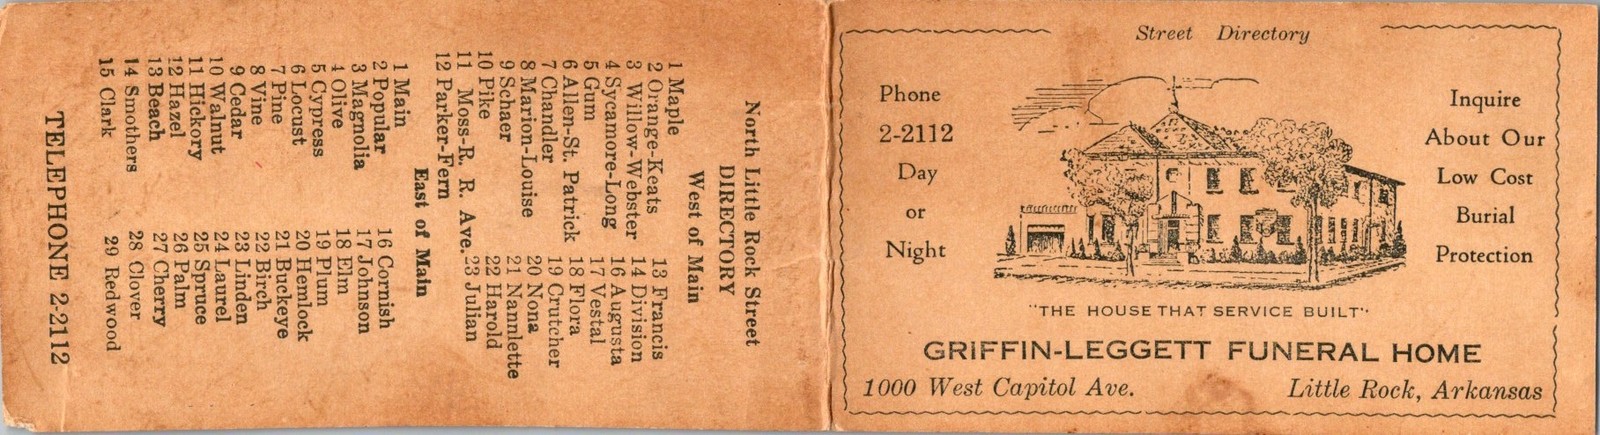 North Little Rock Street
DIRECTORY
West of Main
1 Maple
2 Orange-Keats 13 Francis
3 Willow-Webster 14 Division
4 Sycamore-Long 16 Augusta
5 Gum 17 Vestal
6 Allen-St. Patrick 18 Flora
7 Chandler 19 Crutcher
8 Marion-Louise 20 Nona
9 Schaer 21 Nannlette
10 Pike 22 Harold
11 Moss-R. R. Ave. 23 Julian
12 Parker-Fern
East of Main
1 Main
2 Popular 16 Cornish
3 Magnolia 17 Johnson
4 Olive 18 Elm
5 Cypress 19 Plum
6 Locust 20 Hemlock
7 Pine 21 Buckeye
8 Vine 22 Birch
9 Cedar 23 Linden
10 Walnut 24 Laurel
11 Hickory 25 Spruce
12 Hazel 26 Palm
13 Beach 27 Cherry
14 Smothers 28 Clover
15 Clark 29 Redwood
TELEPHONE 2-2112
Street Directory
Phone
2-2112
Day
or
Night
Inquire
About Our
Low Cost
Burial
Protection
"THE HOUSE THAT SERVICE BUILT"
GRIFFIN-LEGGETT FUNERAL HOME
1000 West Capitol Ave. Little Rock, Arkansas